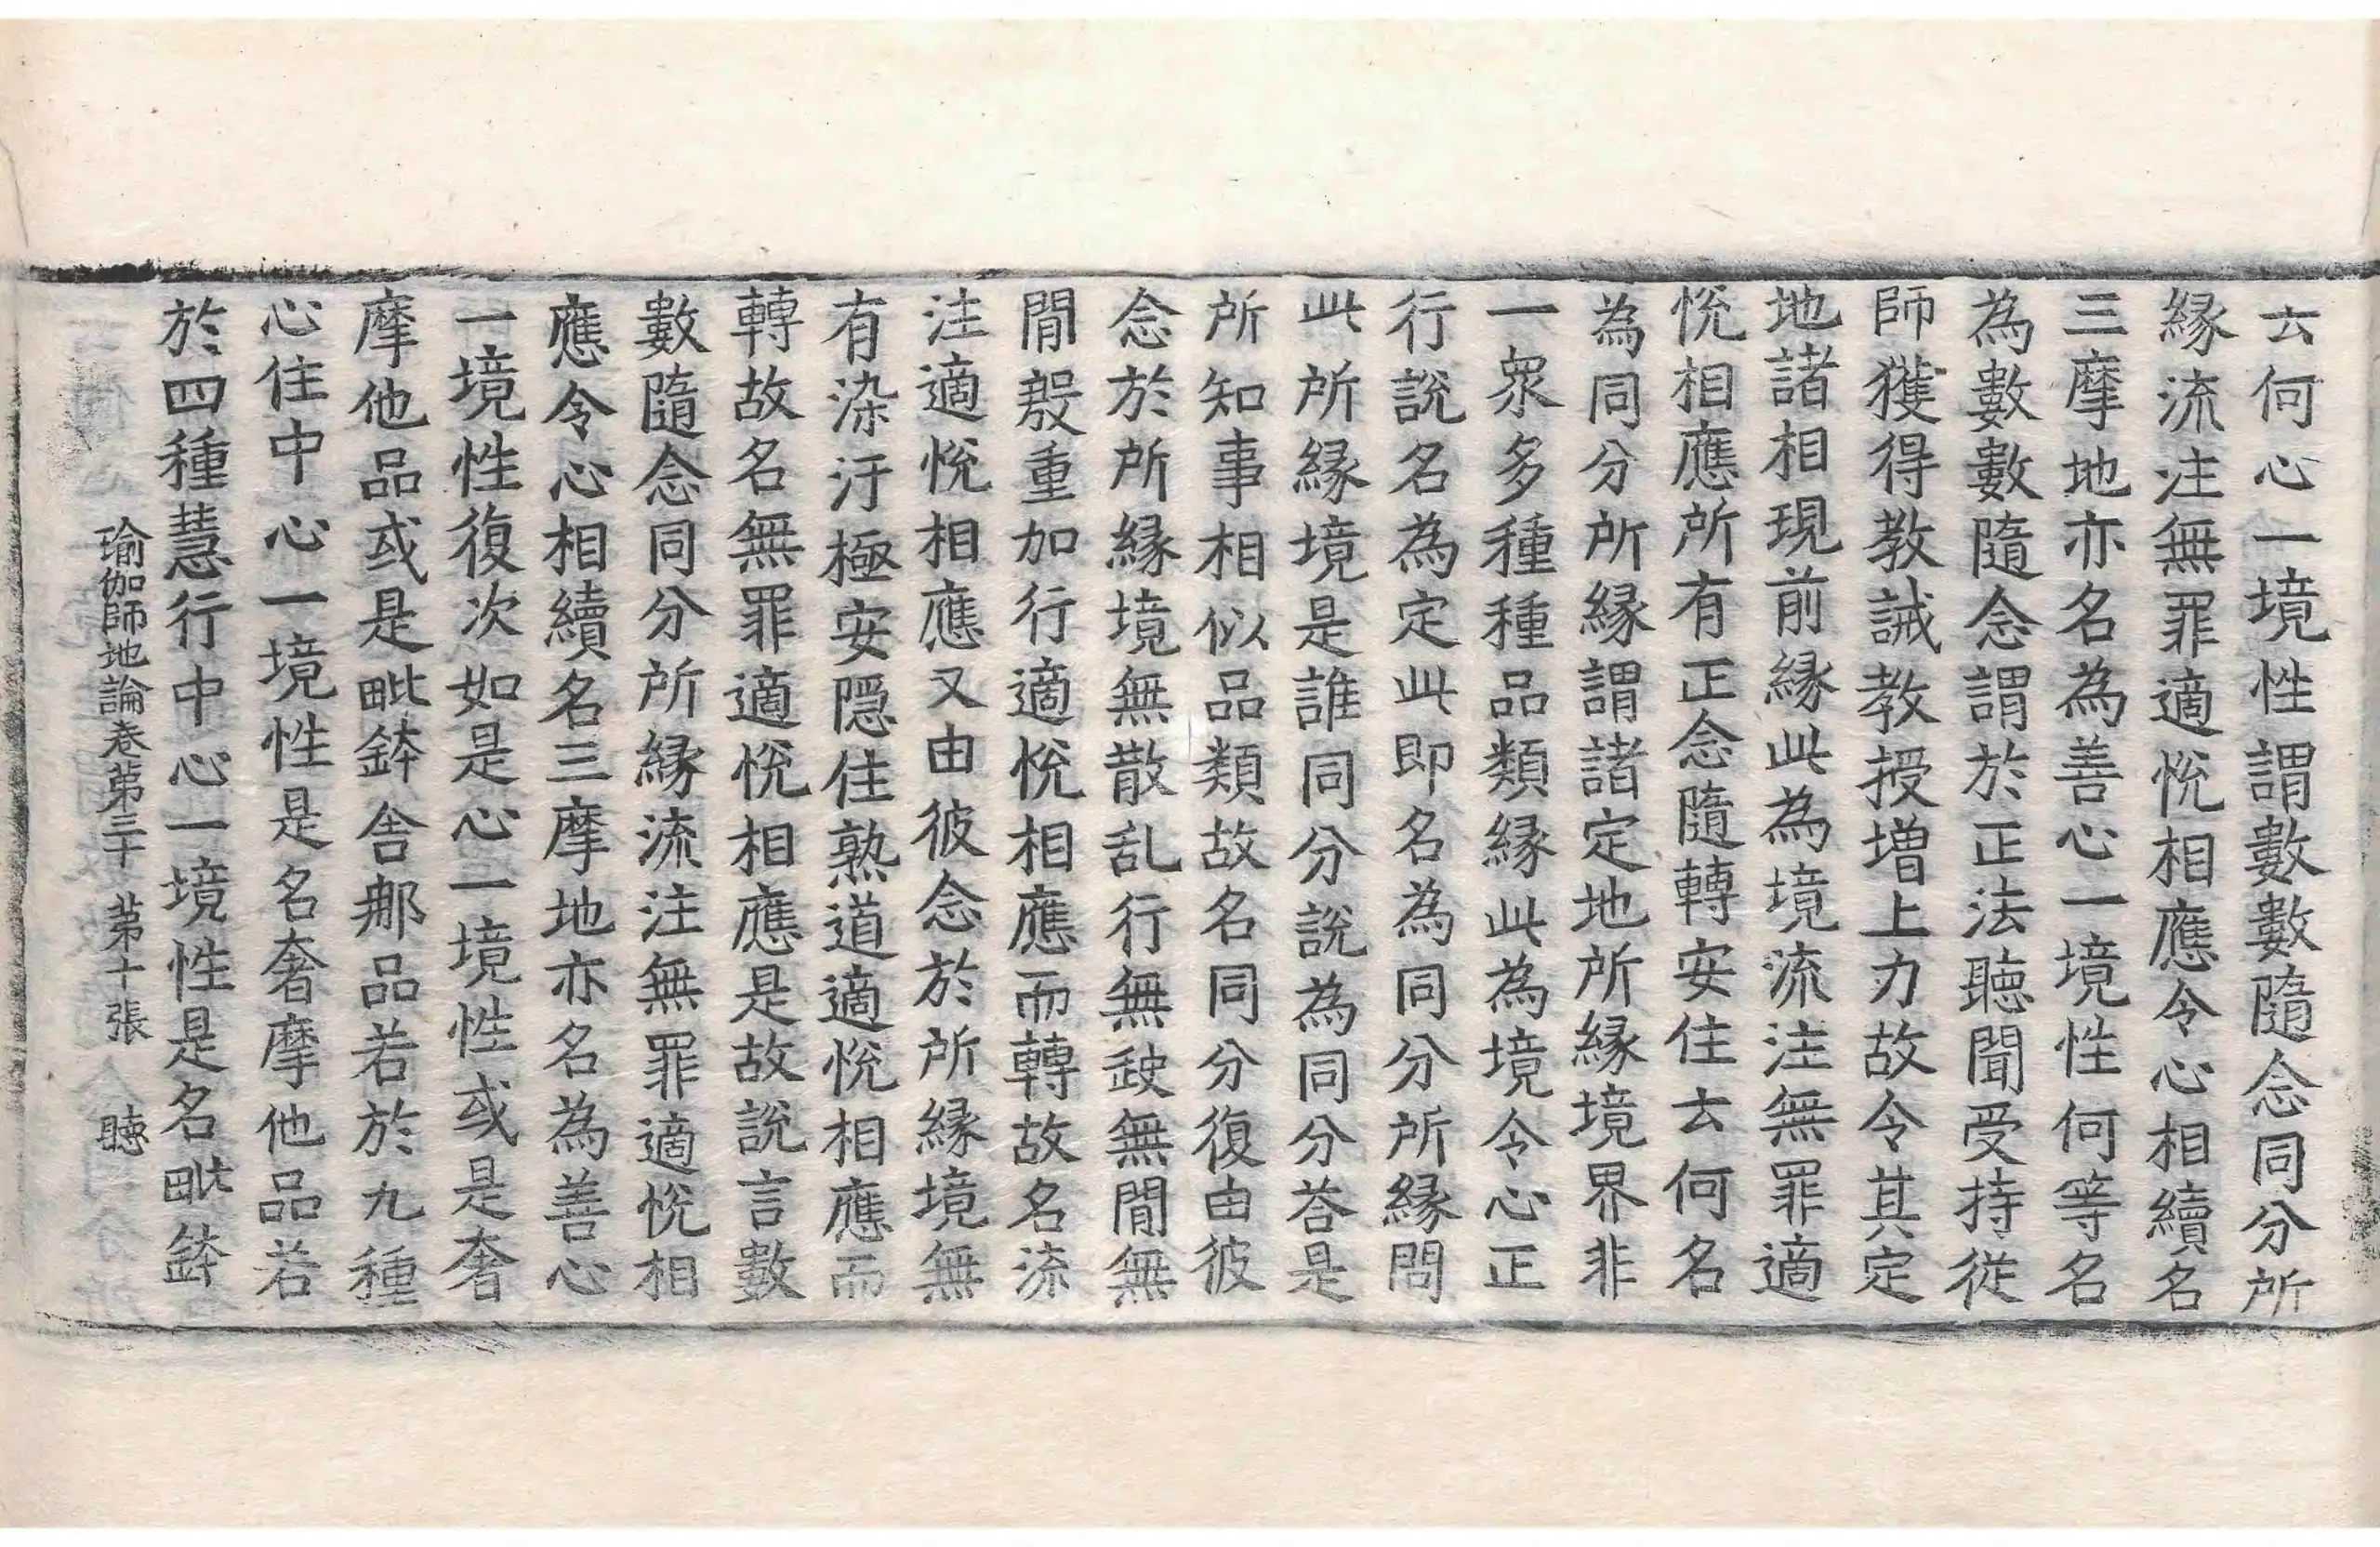 云何心一境性謂數數隨念同分所
縁流注無罪適悅相應令心相續名
三摩地亦名為善心一境性何等名
為數數隨念謂於正法聽聞受持從
師獲得教誡教授增上力故令其定
地諸相現前縁此為境流注無罪適
悅相應所有正念隨轉安住云何名
為同分所縁謂諸定地所縁境界非
一衆多種種品類縁此為境令心正
行說名為定此即名為同分所縁問
此所縁境是誰同分說為同分荅是
所知事相似品類故名同分復由彼
念於所縁境無散乱行無𡙇無閒無
閒殷重加行適悅相應而轉故名流
注適悅相應又由彼念於所縁境無
有染汙極安隱住熟道適悅相應而
轉故名無罪適悅相應是故說言數
數隨念同分所縁流注無罪適悅相
應令心相續名三摩地亦名為善心
一境性復次如是心一境性或是奢
摩他品或是毗鉢舍那品若於九種
心住中心一境性是名奢摩他品若
於四種慧行中心一境性是名毗鉢
瑜伽師地論卷第三十　第十張　聽